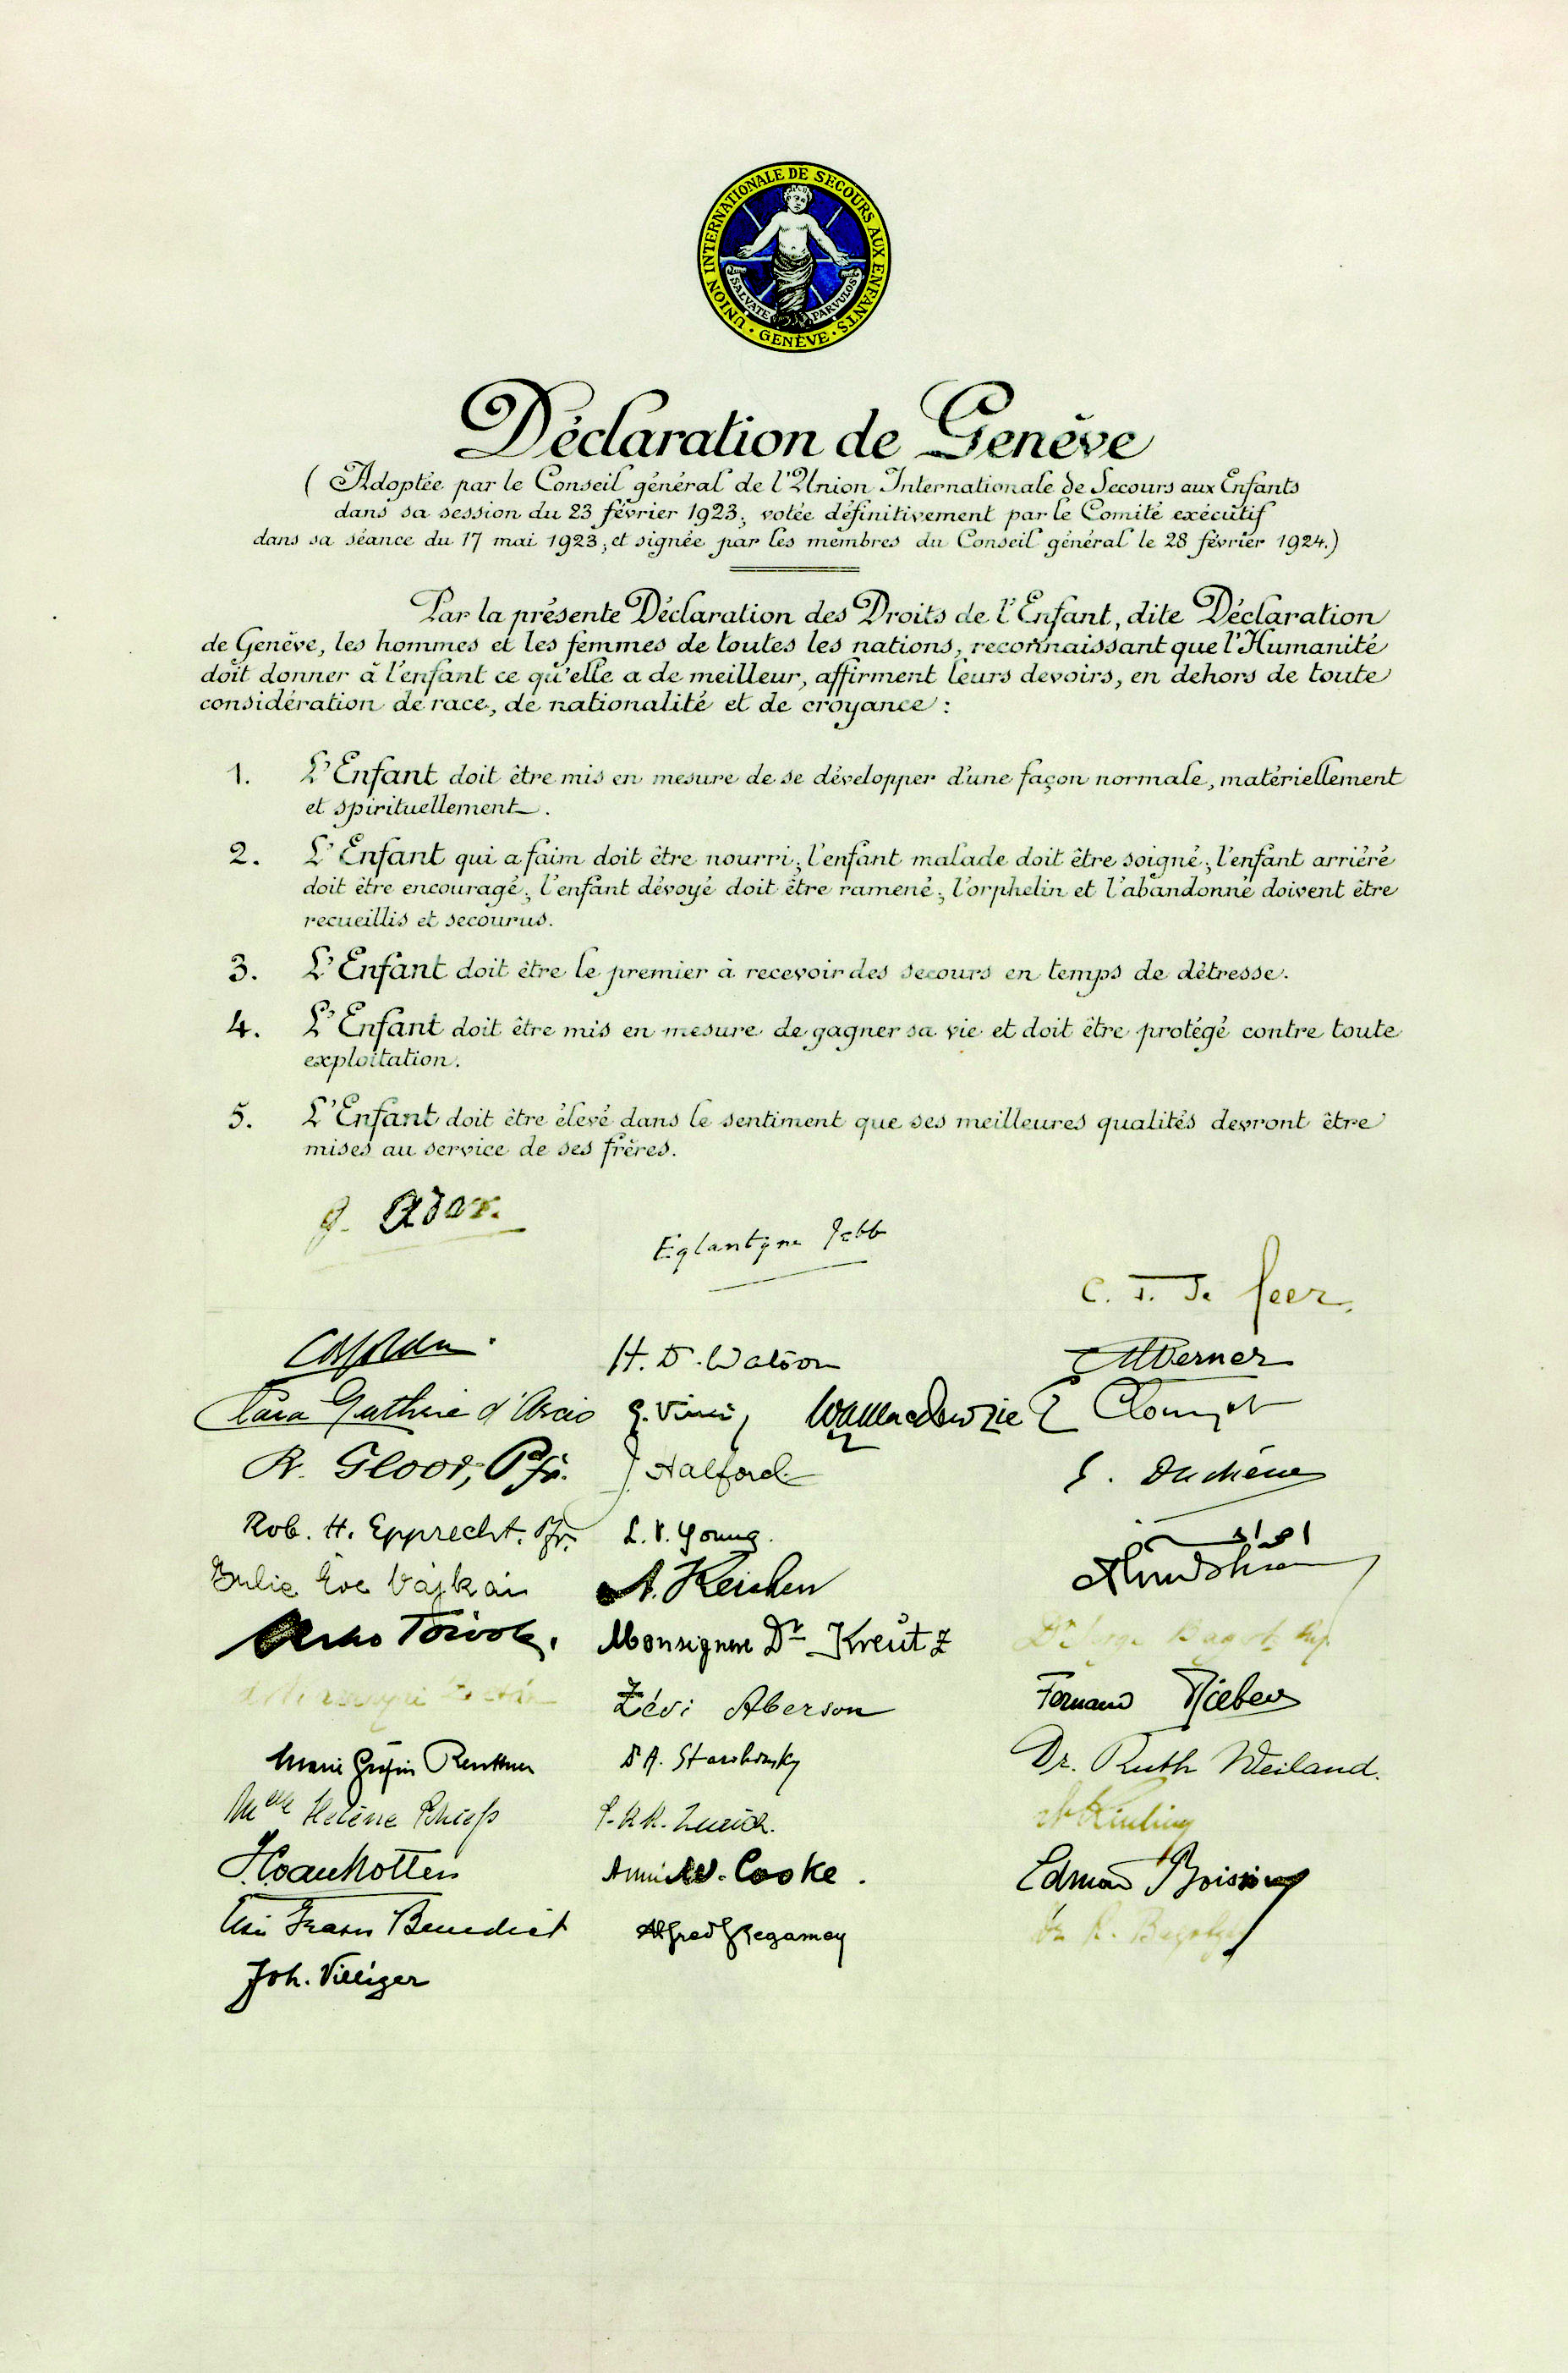 UNION INTERNATIONALE DE SECOURS AUX ENFANTS
SALVATE PARVULOS
· GENÈVE ·
Déclaration de Genève
( Adoptée par le Conseil général de l'Union Internationale de Secours aux Enfants
dans sa session du 23 février 1923, votée définitivement par le Comité exécutif
dans sa séance du 17 mai 1923, et signée par les membres du Conseil général le 28 février 1924.)
Par la présente Déclaration des Droits de l'Enfant, dite Déclaration
de Genève, les hommes et les femmes de toutes les nations, reconnaissant que l'Humanité
doit donner à l'enfant ce qu'elle a de meilleur, affirment leurs devoirs, en dehors de toute
considération de race, de nationalité et de croyance :
1. L'Enfant doit être mis en mesure de se développer d'une façon normale, matériellement
et spirituellement.
2. L'Enfant qui a faim doit être nourri; l'enfant malade doit être soigné; l'enfant arriéré
doit être encouragé; l'enfant dévoyé doit être ramené; l'orphelin et l'abandonné doivent être
recueillis et secourus.
3. L'Enfant doit être le premier à recevoir des secours en temps de détresse.
4. L'Enfant doit être mis en mesure de gagner sa vie et doit être protégé contre toute
exploitation.
5. L'Enfant doit être élevé dans le sentiment que ses meilleures qualités devront être
mises au service de ses frères.
G. Ador.
Eglantyne Jebb
H. D. Watson
Werner
Clara Guthrie d'Arcis
E. Clouzot
R. Gloor, Pfr.
J. Halford
Rob. H. Epprecht. Pfr.
L. V. Young.
Julie Eve Vajkai
Monsignore Dr Kreutz
Zévi Aberson
Fernand
Marie Gräfin
Dr A.
Dr. Ruth Weiland.
Mlle Hélène
Cooke.
Benedict
Alfred Regamey
Joh. Villiger